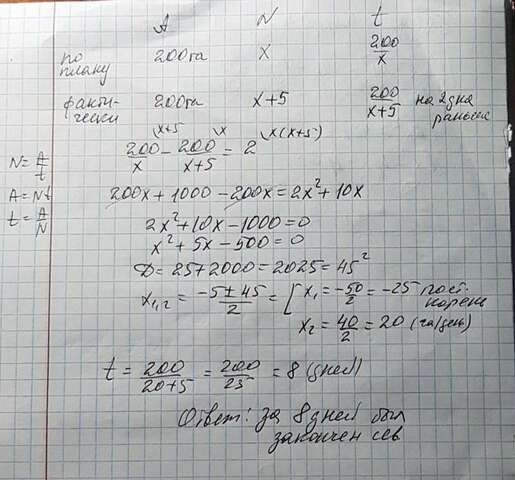 A N t
по плану 200га x 200/x
факти-чески 200га x+5 200/(x+5) на 2 дня раньше
N = A/t
A = Nt
t = A/N
x+5 x x(x+5)
200/x - 200/(x+5) = 2
200x + 1000 - 200x = 2x² + 10x
2x² + 10x - 1000 = 0
x² + 5x - 500 = 0
D = 25 + 2000 = 2025 = 45²
x₁,₂ = (-5 ± 45)/2 = [ x₁ = -50/2 = -25 пост. корень
x₂ = 40/2 = 20 (га/день)
t = 200/(20+5) = 200/25 = 8 (дней)
Ответ: за 8 дней был
закончен сев